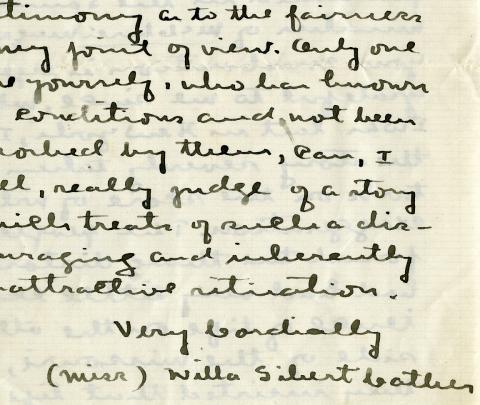 timony as to the fairness
my point of view. Only one
e yourself, who has known
conditions and not been
orbed by them, can, I
el, really judge of a story
hich treats of such a dis-
ouraging and inherently
nattractive situation.
Very Cordially
(Miss) Willa Sibert Cather